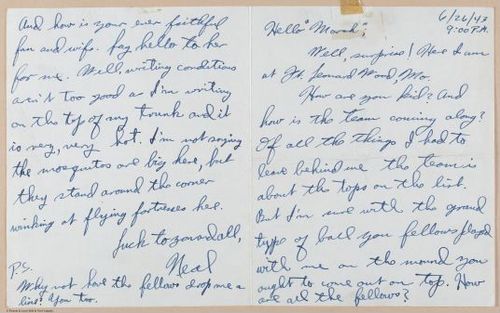 6/26/43
9:00 P.M.
Hello "Marsh",
Well, surprise! Here I am
at Ft. Leonard Wood, Mo.
How are you kid? And
how is the team coming along?
Of all the things I had to
leave behind me the team is
about the tops on the list.
But I'm sure with the grand
type of ball you fellows played
with me on the mound you
ought to come out on top. How
are all the fellows?
And how is your ever faithful
fan and wife. Say hello to her
for me. Well, writing conditions
ain't too good as I'm writing
on the top of my trunk and it
is very, very hot. I'm not saying
the mosquitos are big here, but
they stand around the corner
winking at flying fortresses here.
Luck to you and all,
Neal
P.S.
Why not have the fellows drop me a
line? You too.